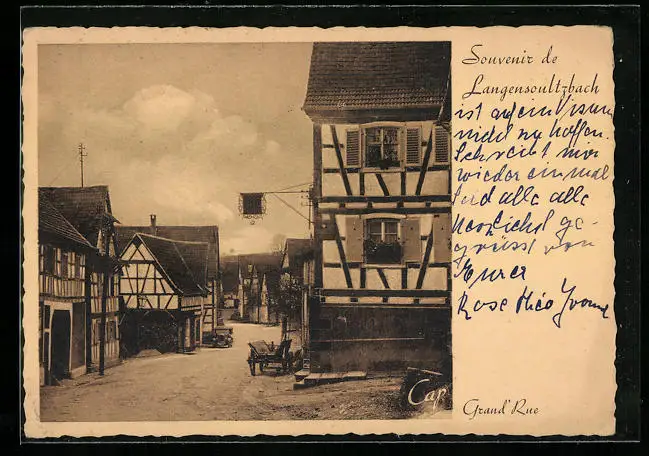 Souvenir de
Langensoultzbach
ist auf ein Visum
nicht zu hoffen.
Schreibt mir
wieder einmal
Seid alle alle
herzlichst ge-
grüsst von
Eurer
Rose Théo Yvonne
Grand'Rue
Cap